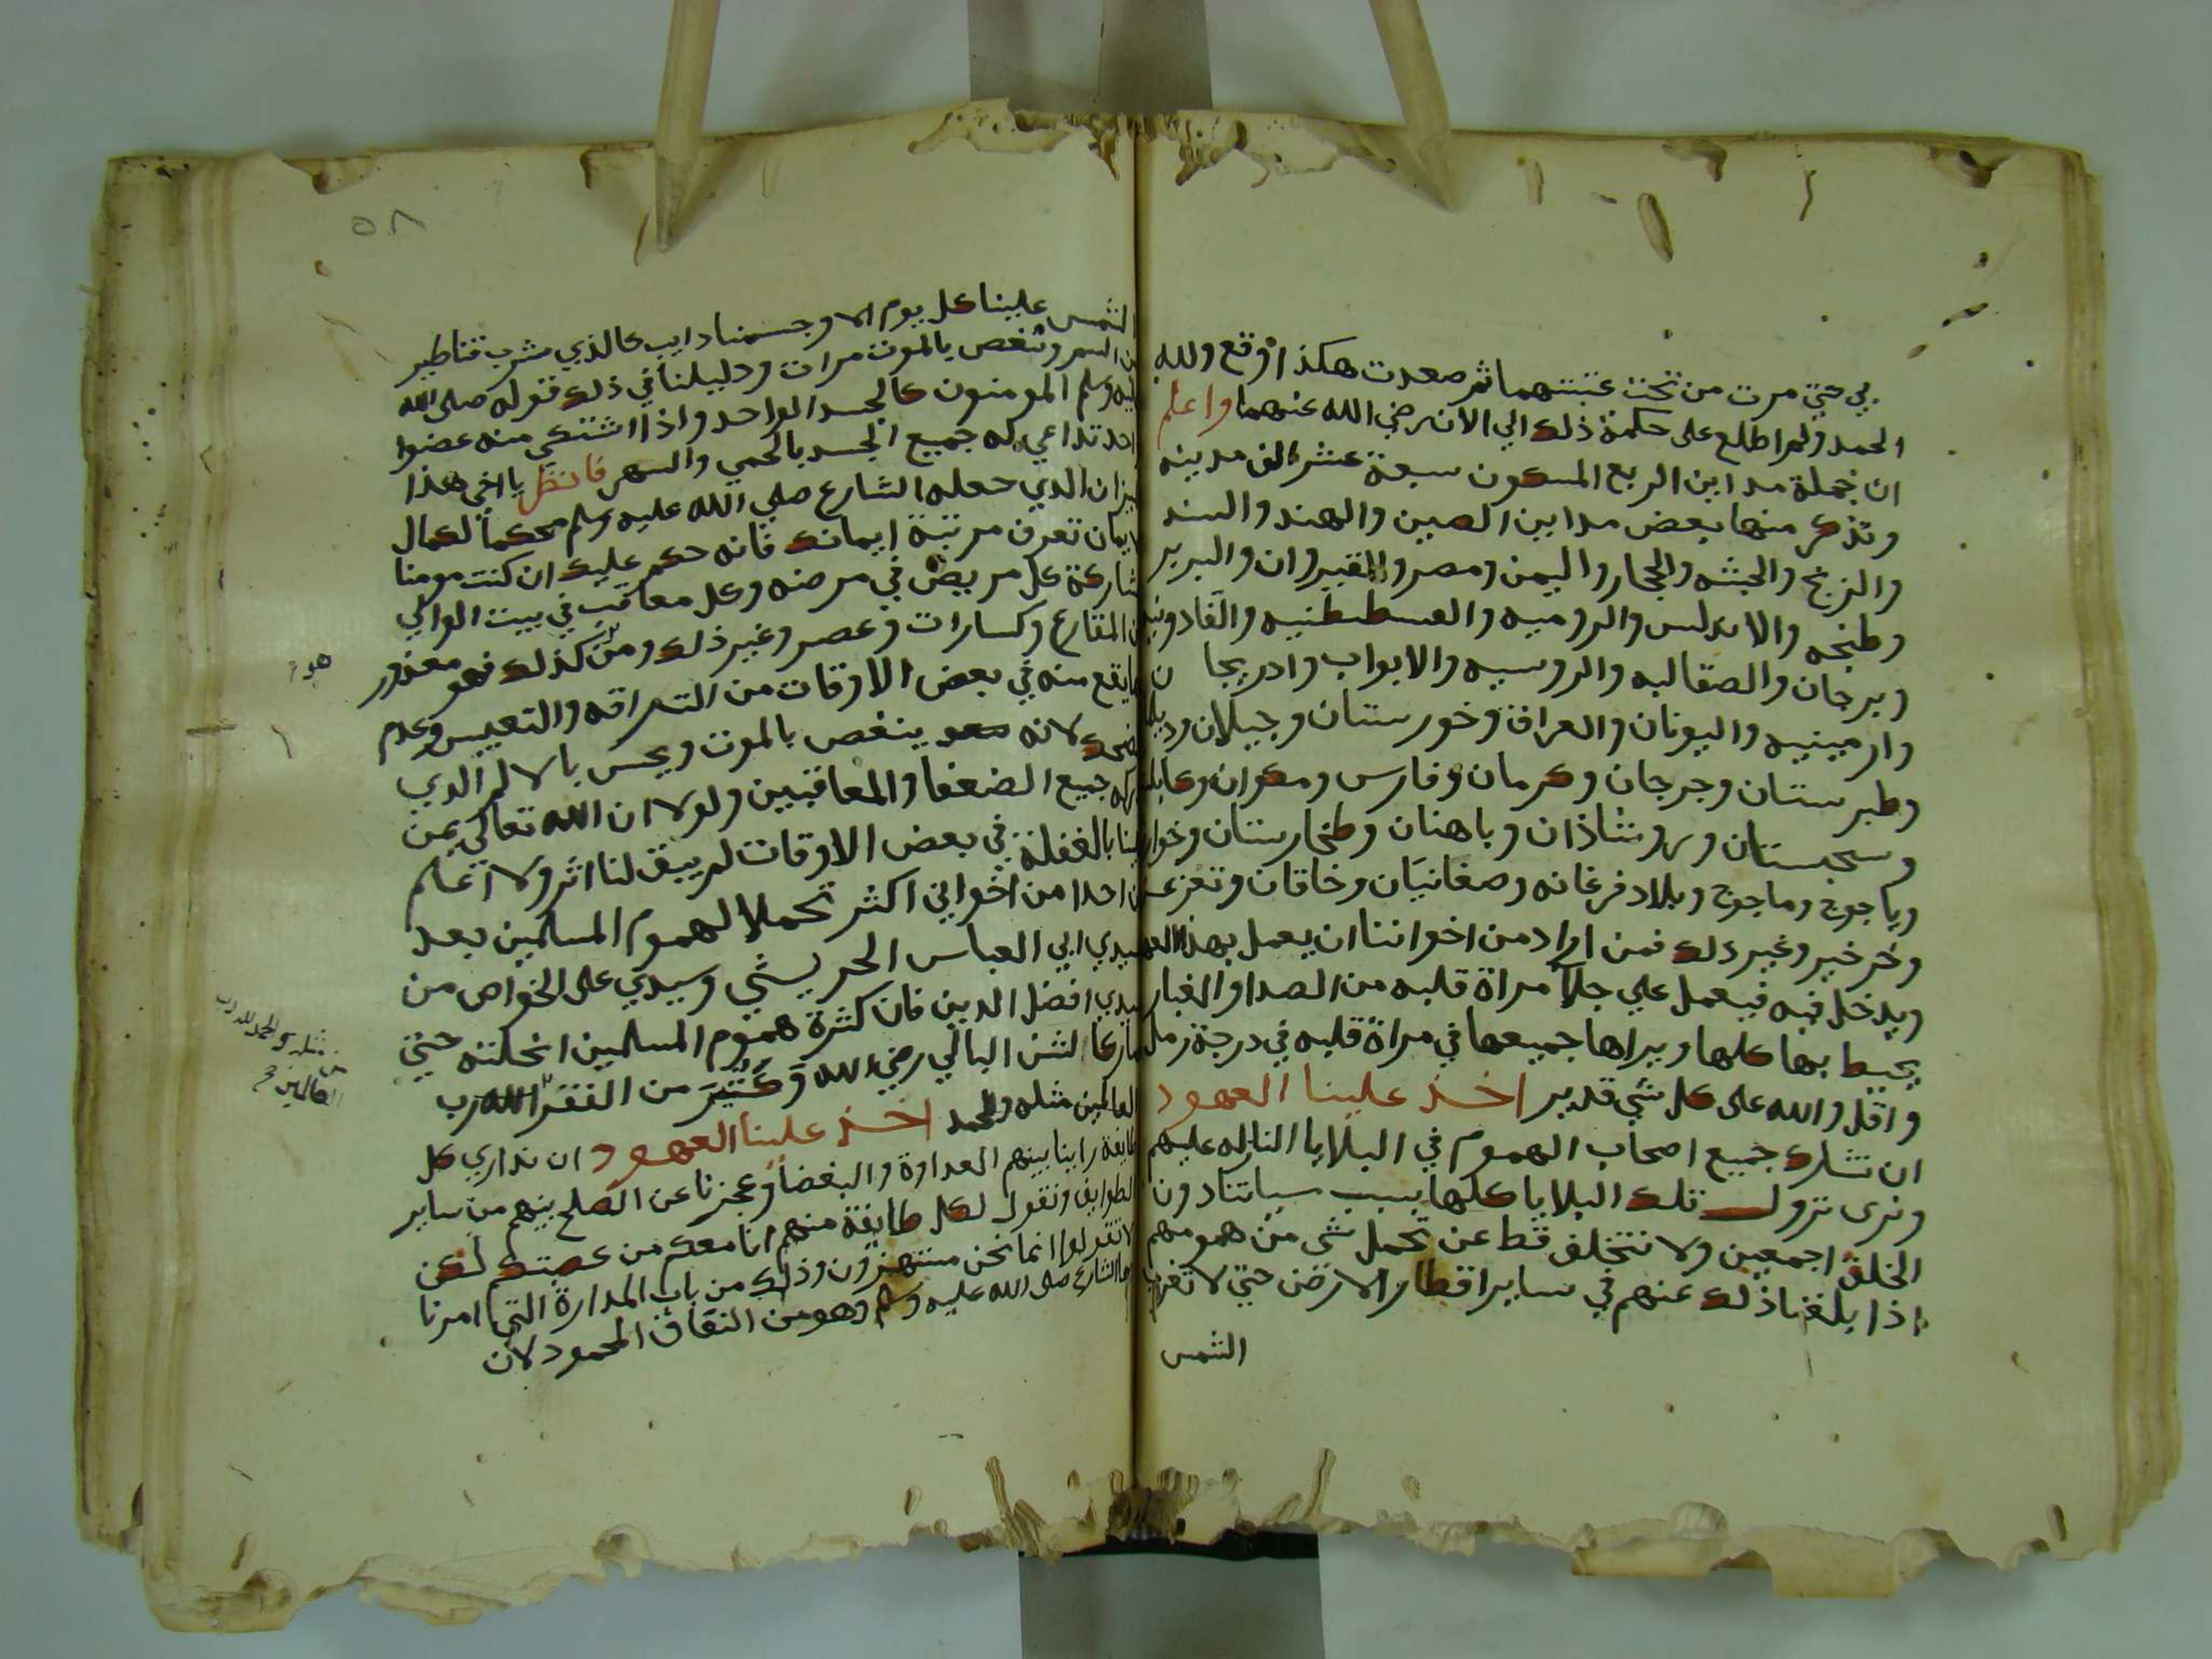 بي حتي مرت من تحت عتبتهما ثم صعدت هكذا وقع ولله
الحمد ولم اطلع على حكمة ذلك الي الان رضي الله عنهما واعلم
ان جملة مداين الربع المسكون سبعة عشر الف مدينه
ونذكر منها بعض مداين الصين والهند والسند
والزنج والحبشه والحجاز واليمن ومصر والقيروان والبربر
وطنجه والاندلس والروميه والقسطنطنيه
وبرجان والصقالبه والروسيه والابواب وادريجان
وارمينيه واليونان والعراق وخورستان وجيلان
وطبرستان وجرجان وكرمان وفارس ومكران وكابل
وسجستان وباهنان وطخارستان
وياجوج وماجوج وبلاد فرغانه وصغانيان وخاقان
وخرخير وغير ذلك فمن اراد من اخواننا ان يعمل بهذا العهد
ويدخل فيه فيعمل علي جلا مراة قلبه من الصدا والغبار
يحيط بها كلها ويراها جميعها في مراة قلبه في درجة رمل
واقل والله على كل شي قدير اخذ علينا العهود
ان نشارك جميع اصحاب الهموم في البلايا النازله عليهم
ونرى نزول تلك البلايا كلها بسبب سياتنا دون
الخلق اجمعين ولا نتخلف قط عن تحمل شي من همومهم
اذا بلغنا ذلك عنهم في ساير اقطار الارض حتي لا تغرب
الشمس
٥٨
الشمس علينا كل يوم الا وجسمنا دايب كالذي شرب قناطير
من السم وننغص بالموت مرات ودليلنا في ذلك قوله صلى الله
عليه وسلم المومنون كالجسد الواحد واذا اشتكي منه عضوا
احد تداعي له جميع الجسد بالحمي والسهر فانظر يا اخي هذا
الميزان الذي جعله الشارع صلي الله عليه وسلم محكما لكمال
الايمان تعرف مرتبة ايمانك فانه حكم عليك ان كنت مومنا
مشاركة كل مريض في مرضه وكل معاقب في بيت الوالي
من المقارع وكسارات وعصر وغير ذلك ومن كذلك فهو معذور
ما يقع منه في بعض الاوقات من التعبيس وعدم
الضحك لانه ينغص بالموت ويحس بالالم الذي
جميع الضعفا والمعاقبين ولولا ان الله تعالى يمن
علينا بالغفلة في بعض الاوقات لم يبق لنا اثر ولا اعلم
احدا من اخواني اكثر تحملا لهموم المسلمين بعد
سيدي ابي العباس الحريثي وسيدي على الخواص من
سيدي افضل الدين فان كثرة هموم المسلمين انحلته حتي
صار كالشن البالي رضي الله وكثير من الفقرا لله رب
العالمين مثله والحمد اخذ علينا العهود ان نداري كل
طايفة راينا بينهم العداوة والبغضا وعجزنا عن الصلح بينهم من ساير
الطوايف ونقول لكل طايفة منهم انا معكم من عصبتكم لكن
لا تقولوا انما نحن مستهزون وذلك من باب المدارة التي امرنا
بها الشارع صلى الله عليه وسلم وهو من النفاق المحمود لان
مثله والحمد لله رب
العالمين